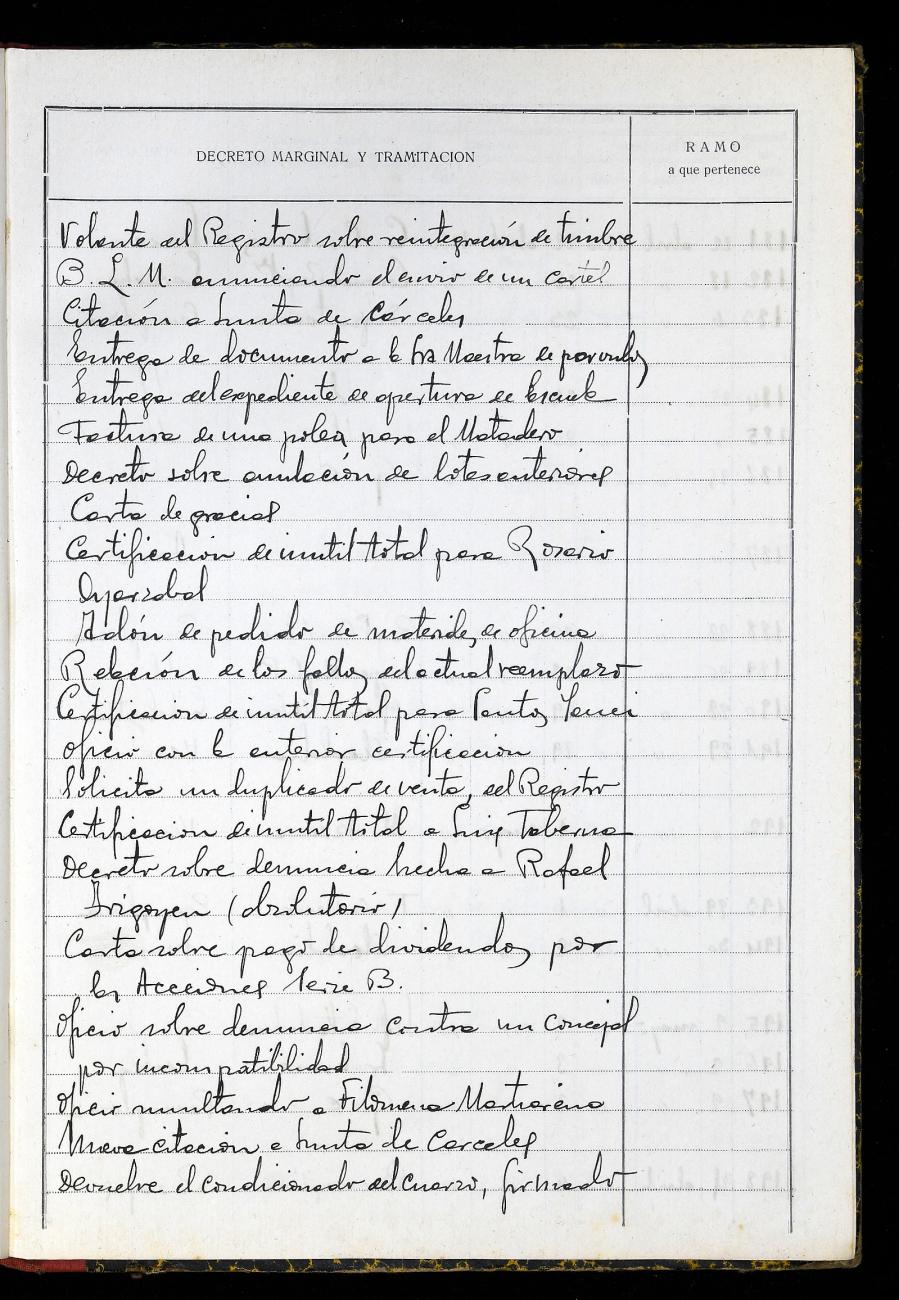 DECRETO MARGINAL Y TRAMITACION
RAMO
a que pertenece
Volante del Registro sobre reintegración de timbre
B. L. M. anunciando el envio de un cartel
Citación a Junta de Cárceles
Entrega de documento a la Sra Maestra de parvulos
Entrega del expediente de apertura de Escuela
Factura de una polea para el Matadero
Decreto sobre anulación de lotes anteriores
Carta de gracias
Certificacion de inutil total para Rosario
Oyarzabal
Talón de pedido de materiales de oficina
Relación de los fallos del actual reemplazo
Certificacion de inutil total para Santos
Oficio con la anterior certificacion
Solicita un duplicado de venta, del Registro
Certificacion de inutil total a Luis Taberna
Decreto sobre denuncia hecha a Rafael
Irigoyen (absolutorio)
Carta sobre pago de dividendos por
las Acciones Serie B.
Oficio sobre denuncia contra un concejal
por incompatibilidad
Oficio multando a Filomena Martiarena
Nueva citación a Junta de Carceles
Devuelve el condicionado del cuarzo, firmado